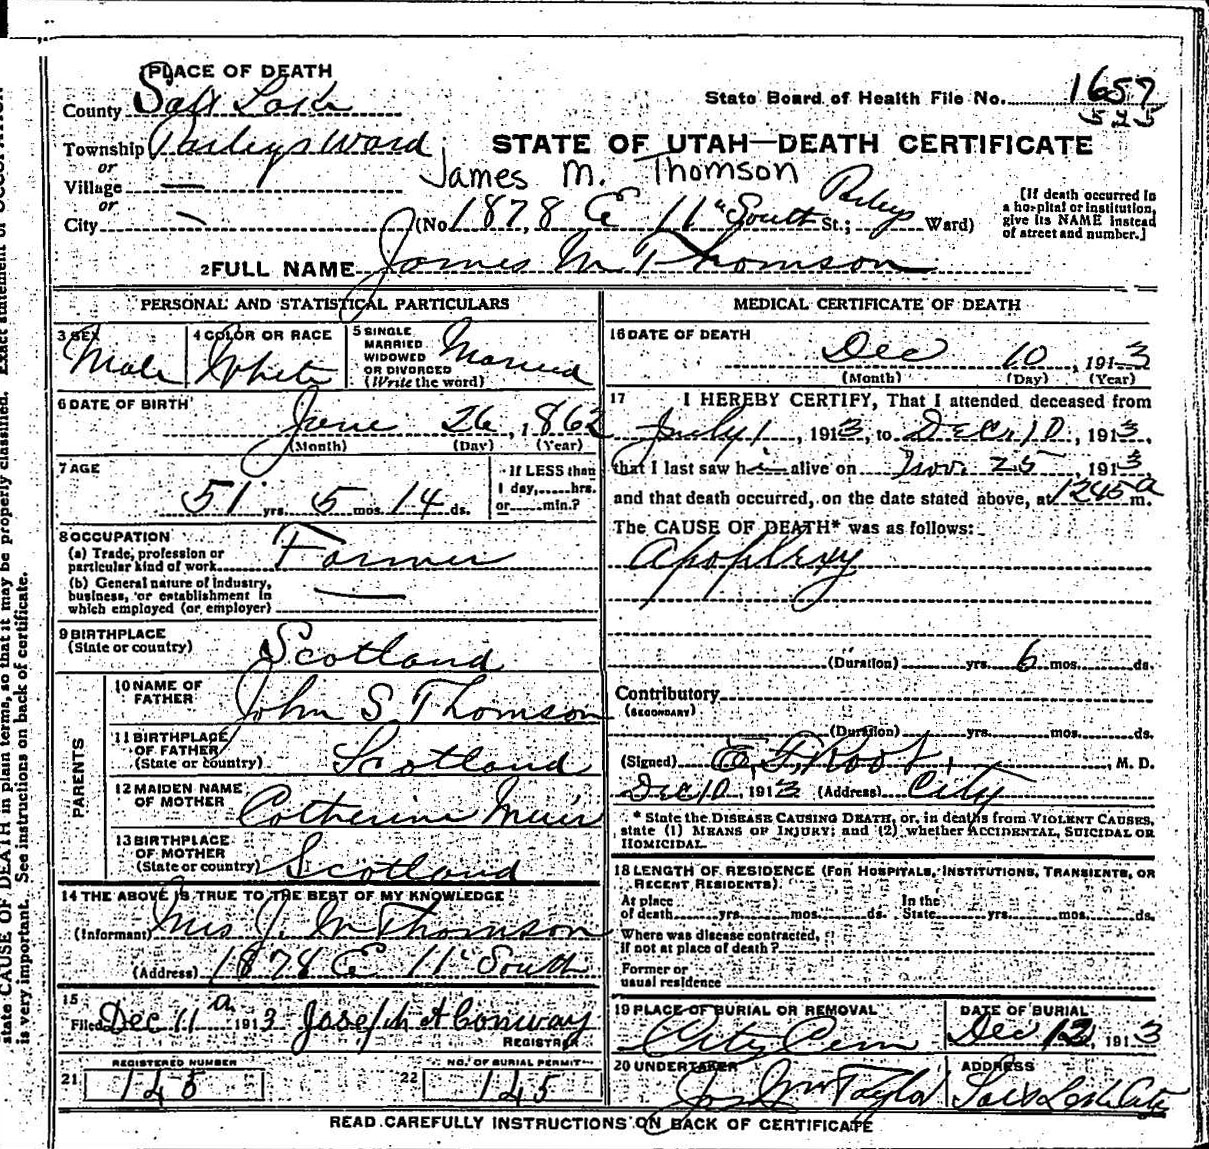 PLACE OF DEATH
County Salt Lake
State Board of Health File No. 1657
525
Township Parleys Ward
STATE OF UTAH—DEATH CERTIFICATE
or
Village —
James M. Thomson
or
City —
(No. 1878 E 11" South St.; Parleys Ward)
[If death occurred in a hospital or institution, give its NAME instead of street and number.]
2 FULL NAME James M Thomson
PERSONAL AND STATISTICAL PARTICULARS
3 SEX Male
4 COLOR OR RACE White
5 SINGLE, MARRIED WIDOWED OR DIVORCED (Write the word) Married
6 DATE OF BIRTH June 26, 1862
(Month) (Day) (Year)
7 AGE
51 yrs. 5 mos. 14 ds.
If LESS than 1 day,......hrs. or......min.?
8 OCCUPATION
(a) Trade, profession or particular kind of work Farmer
(b) General nature of industry, business, or establishment in which employed (or employer) —
9 BIRTHPLACE (State or country) Scotland
PARENTS
10 NAME OF FATHER John S. Thomson
11 BIRTHPLACE OF FATHER (State or country) Scotland
12 MAIDEN NAME OF MOTHER Catherine Muir
13 BIRTHPLACE OF MOTHER (State or country) Scotland
14 THE ABOVE IS TRUE TO THE BEST OF MY KNOWLEDGE
(Informant) Mrs J. M Thomson
(Address) 1878 E 11" South
15
Filed Dec 11 a 1913 Joseph A Conway
REGISTRAR
REGISTERED NUMBER
21 145
NO. OF BURIAL PERMIT
22 145
MEDICAL CERTIFICATE OF DEATH
16 DATE OF DEATH
Dec 10, 1913
(Month) (Day) (Year)
17 I HEREBY CERTIFY, That I attended deceased from
July 1, 1913, to Dec 10, 1913,
that I last saw him alive on Nov. 25, 1913,
and that death occurred, on the date stated above, at 1245 a m.
The CAUSE OF DEATH* was as follows:
Apoplexy
(Duration) yrs. 6 mos. ds.
Contributory
(SECONDARY)
(Duration) yrs. mos. ds.
(Signed) E. F. Root, M. D.
Dec 10, 1913 (Address) City
* State the DISEASE CAUSING DEATH, or, in deaths from VIOLENT CAUSES, state (1) MEANS OF INJURY; and (2) whether ACCIDENTAL, SUICIDAL OR HOMICIDAL.
18 LENGTH OF RESIDENCE (FOR HOSPITALS, INSTITUTIONS, TRANSIENTS, OR RECENT RESIDENTS)
At place of death yrs. mos. ds. In the State yrs. mos. ds.
Where was disease contracted, if not at place of death?
Former or usual residence
19 PLACE OF BURIAL OR REMOVAL City Cem
DATE OF BURIAL Dec 12, 1913
20 UNDERTAKER Jos Wm Taylor
ADDRESS Salt Lake City
READ CAREFULLY INSTRUCTIONS ON BACK OF CERTIFICATE
state CAUSE OF DEATH in plain terms, so that it may be properly classified. Exact statement of OCCUPATION
is very important. See instructions on back of certificate.